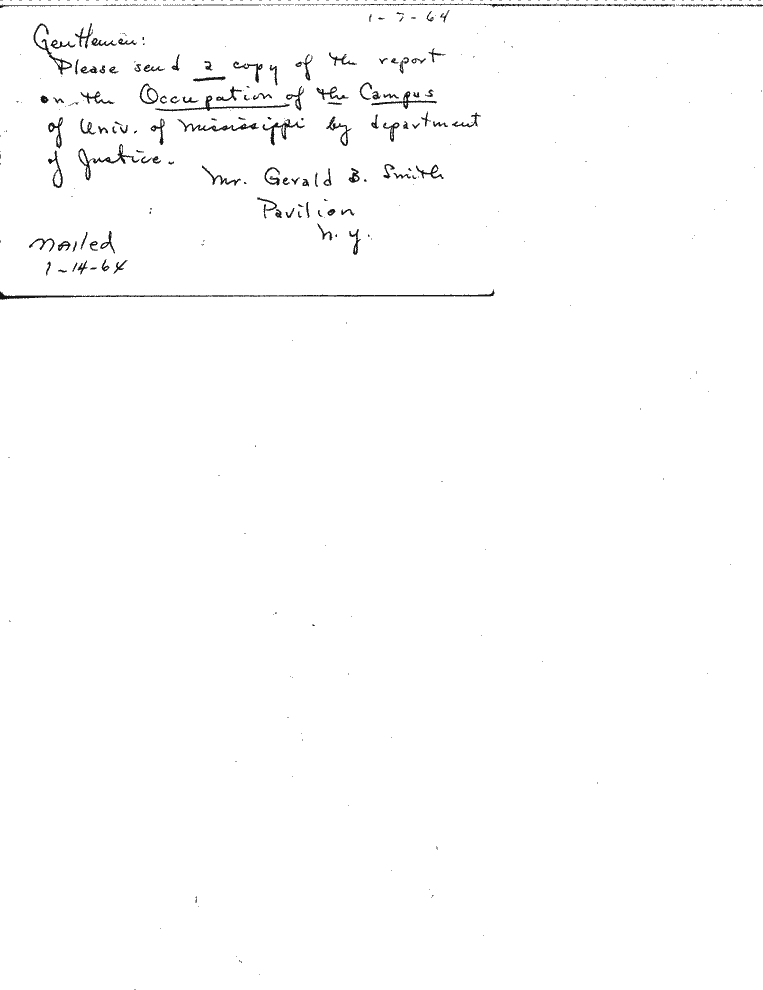 1-7-64
Gentlemen:
Please send a copy of the report
on the Occupation of the Campus
of Univ. of Mississippi by department
of Justice.
Mr. Gerald B. Smith
Pavilion
N.Y.
Mailed
1-14-64